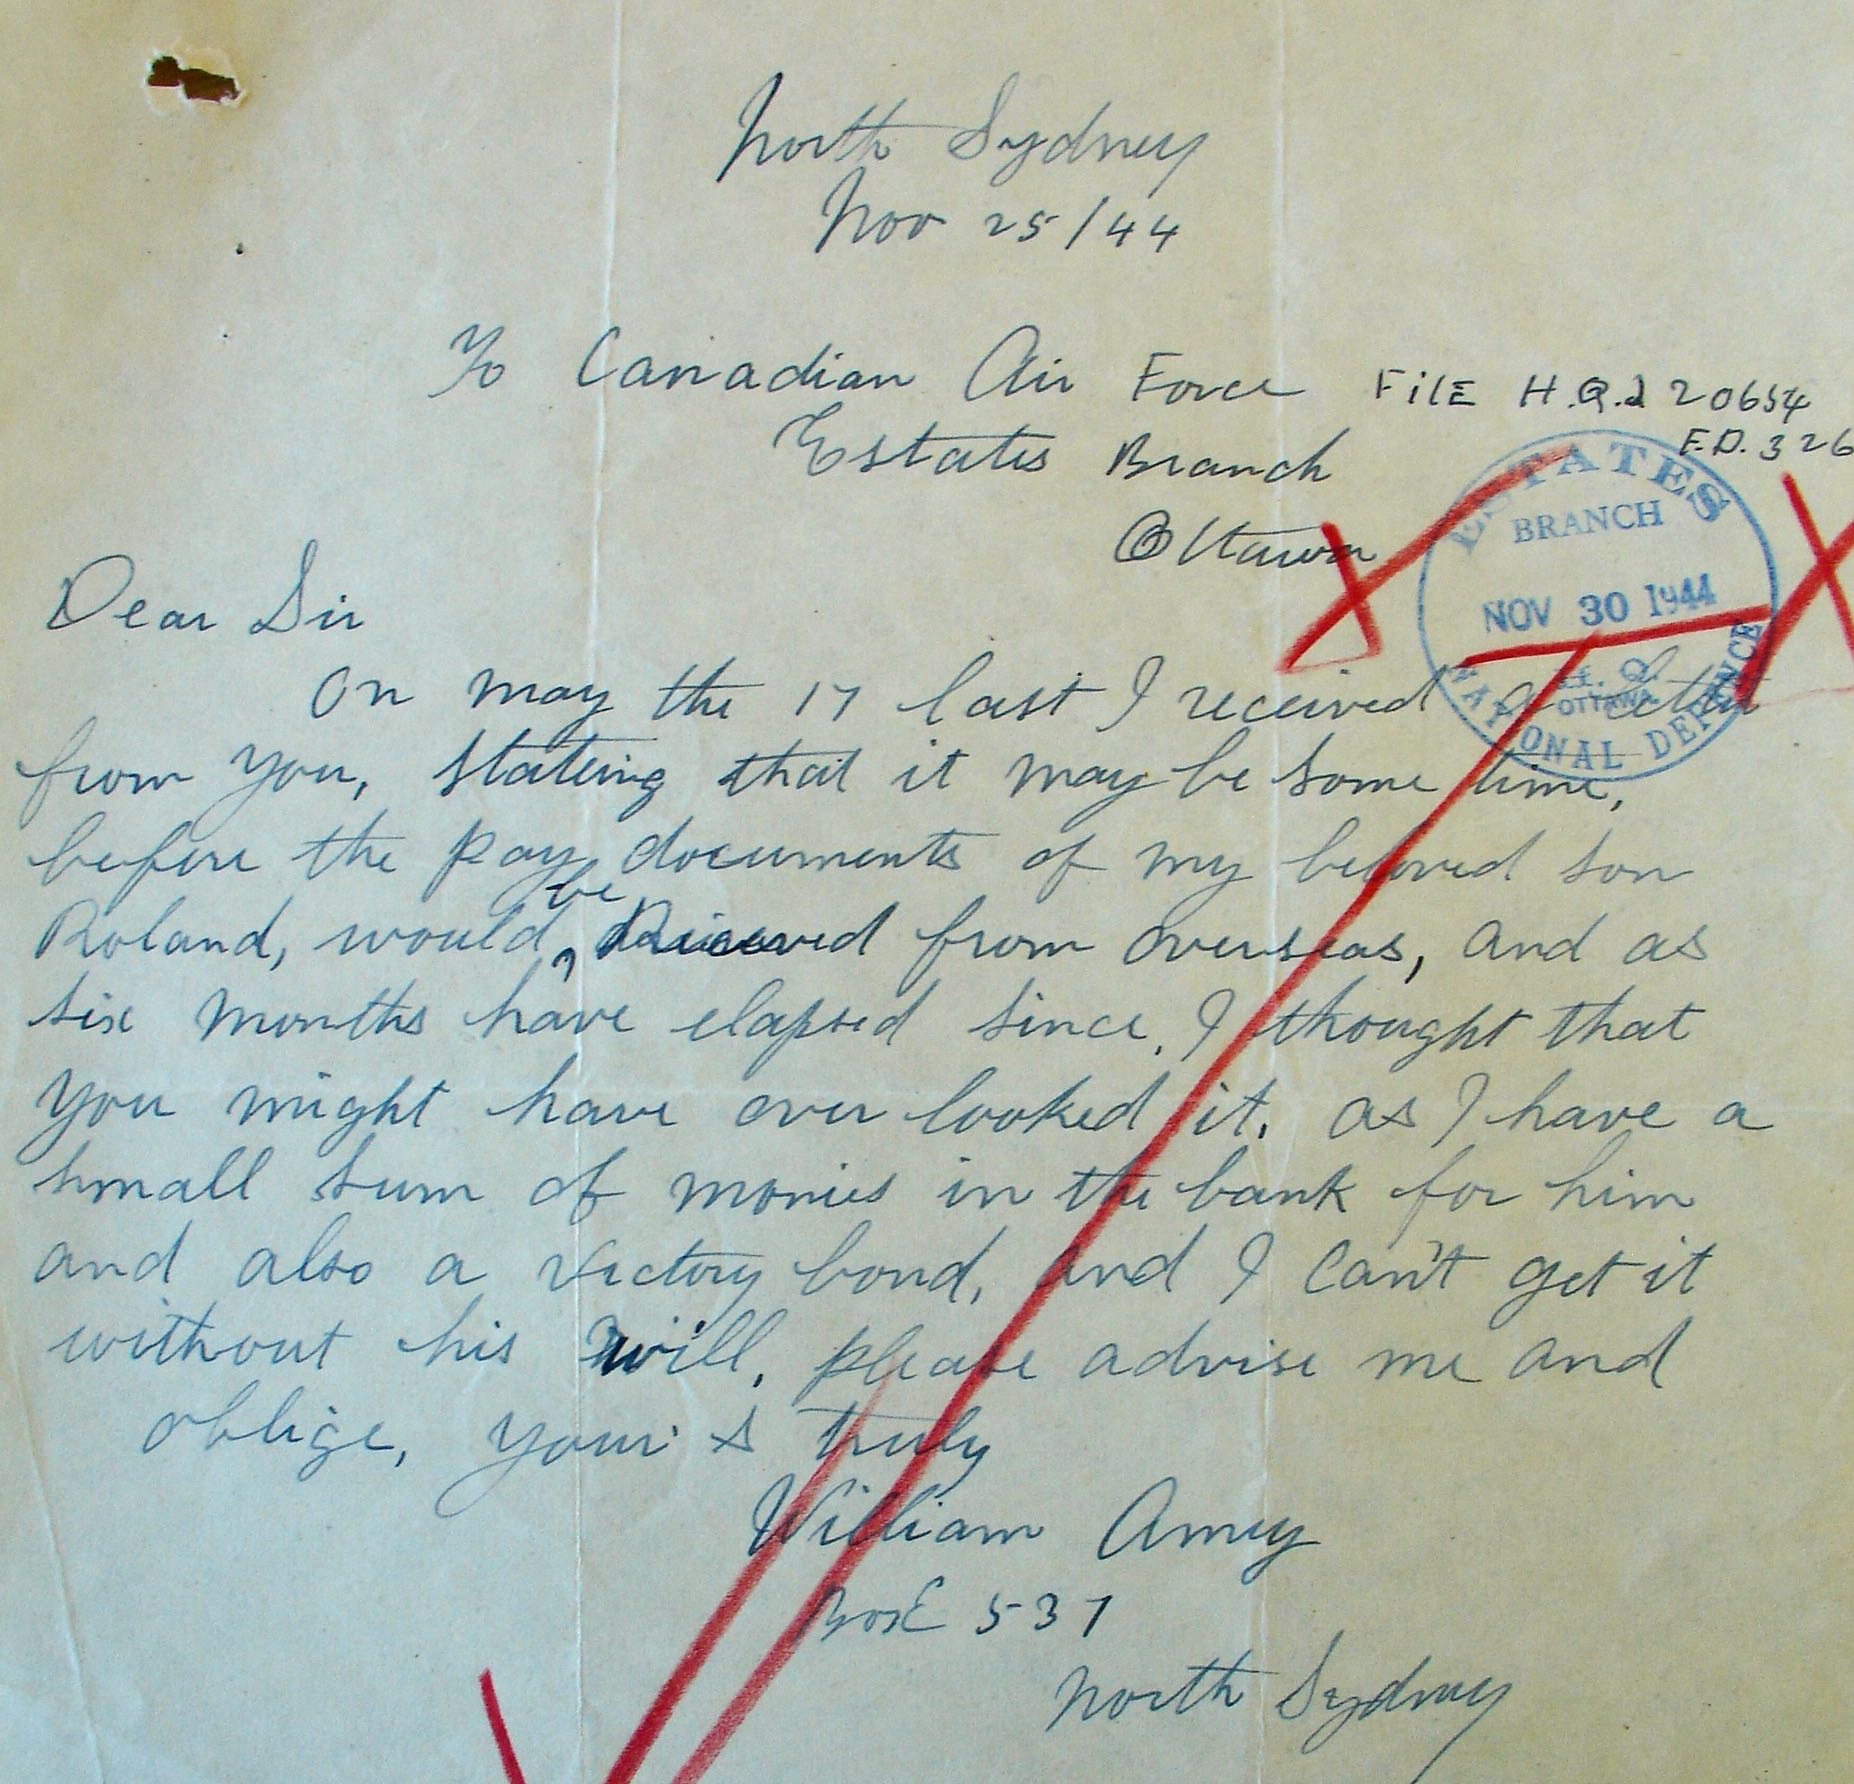 North Sydney
Nov 25/44
To Canadian Air Force FilE H.Q.J 20654
Estates Branch F.D. 326
Ottawa
ESTATES
BRANCH
NOV 30 1944
OTTAWA
NATIONAL DEFENCE
Dear Sir
On may the 17 last I received a letter
from you, stateing that it may be some time,
before the pay documents of my beloved son
Roland, would be Received from overseas, and as
six months have elapsed since. I thought that
you might have over looked it. as I have a
small sum of monies in the bank for him
and also a victory bond, and I can't get it
without his will. please advise me and
oblige, your's truly
William Amey
Box 537
North Sydney